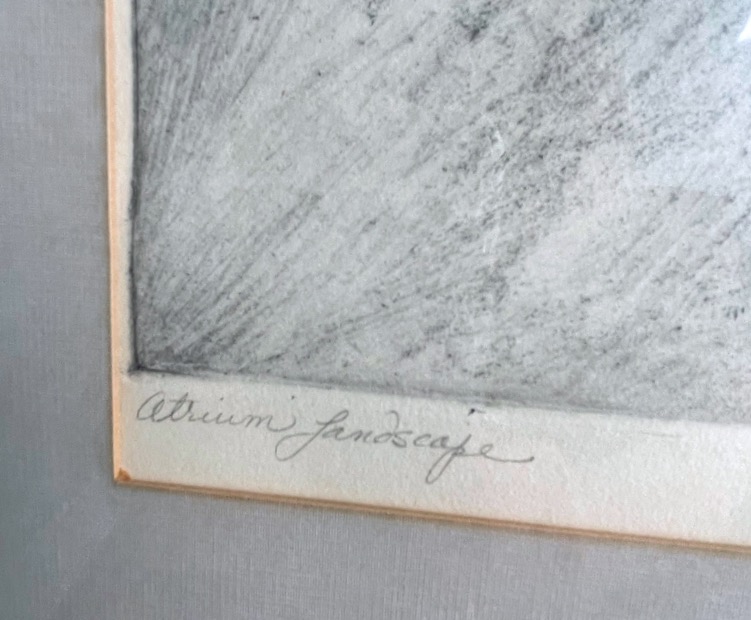 Atrium Landscape